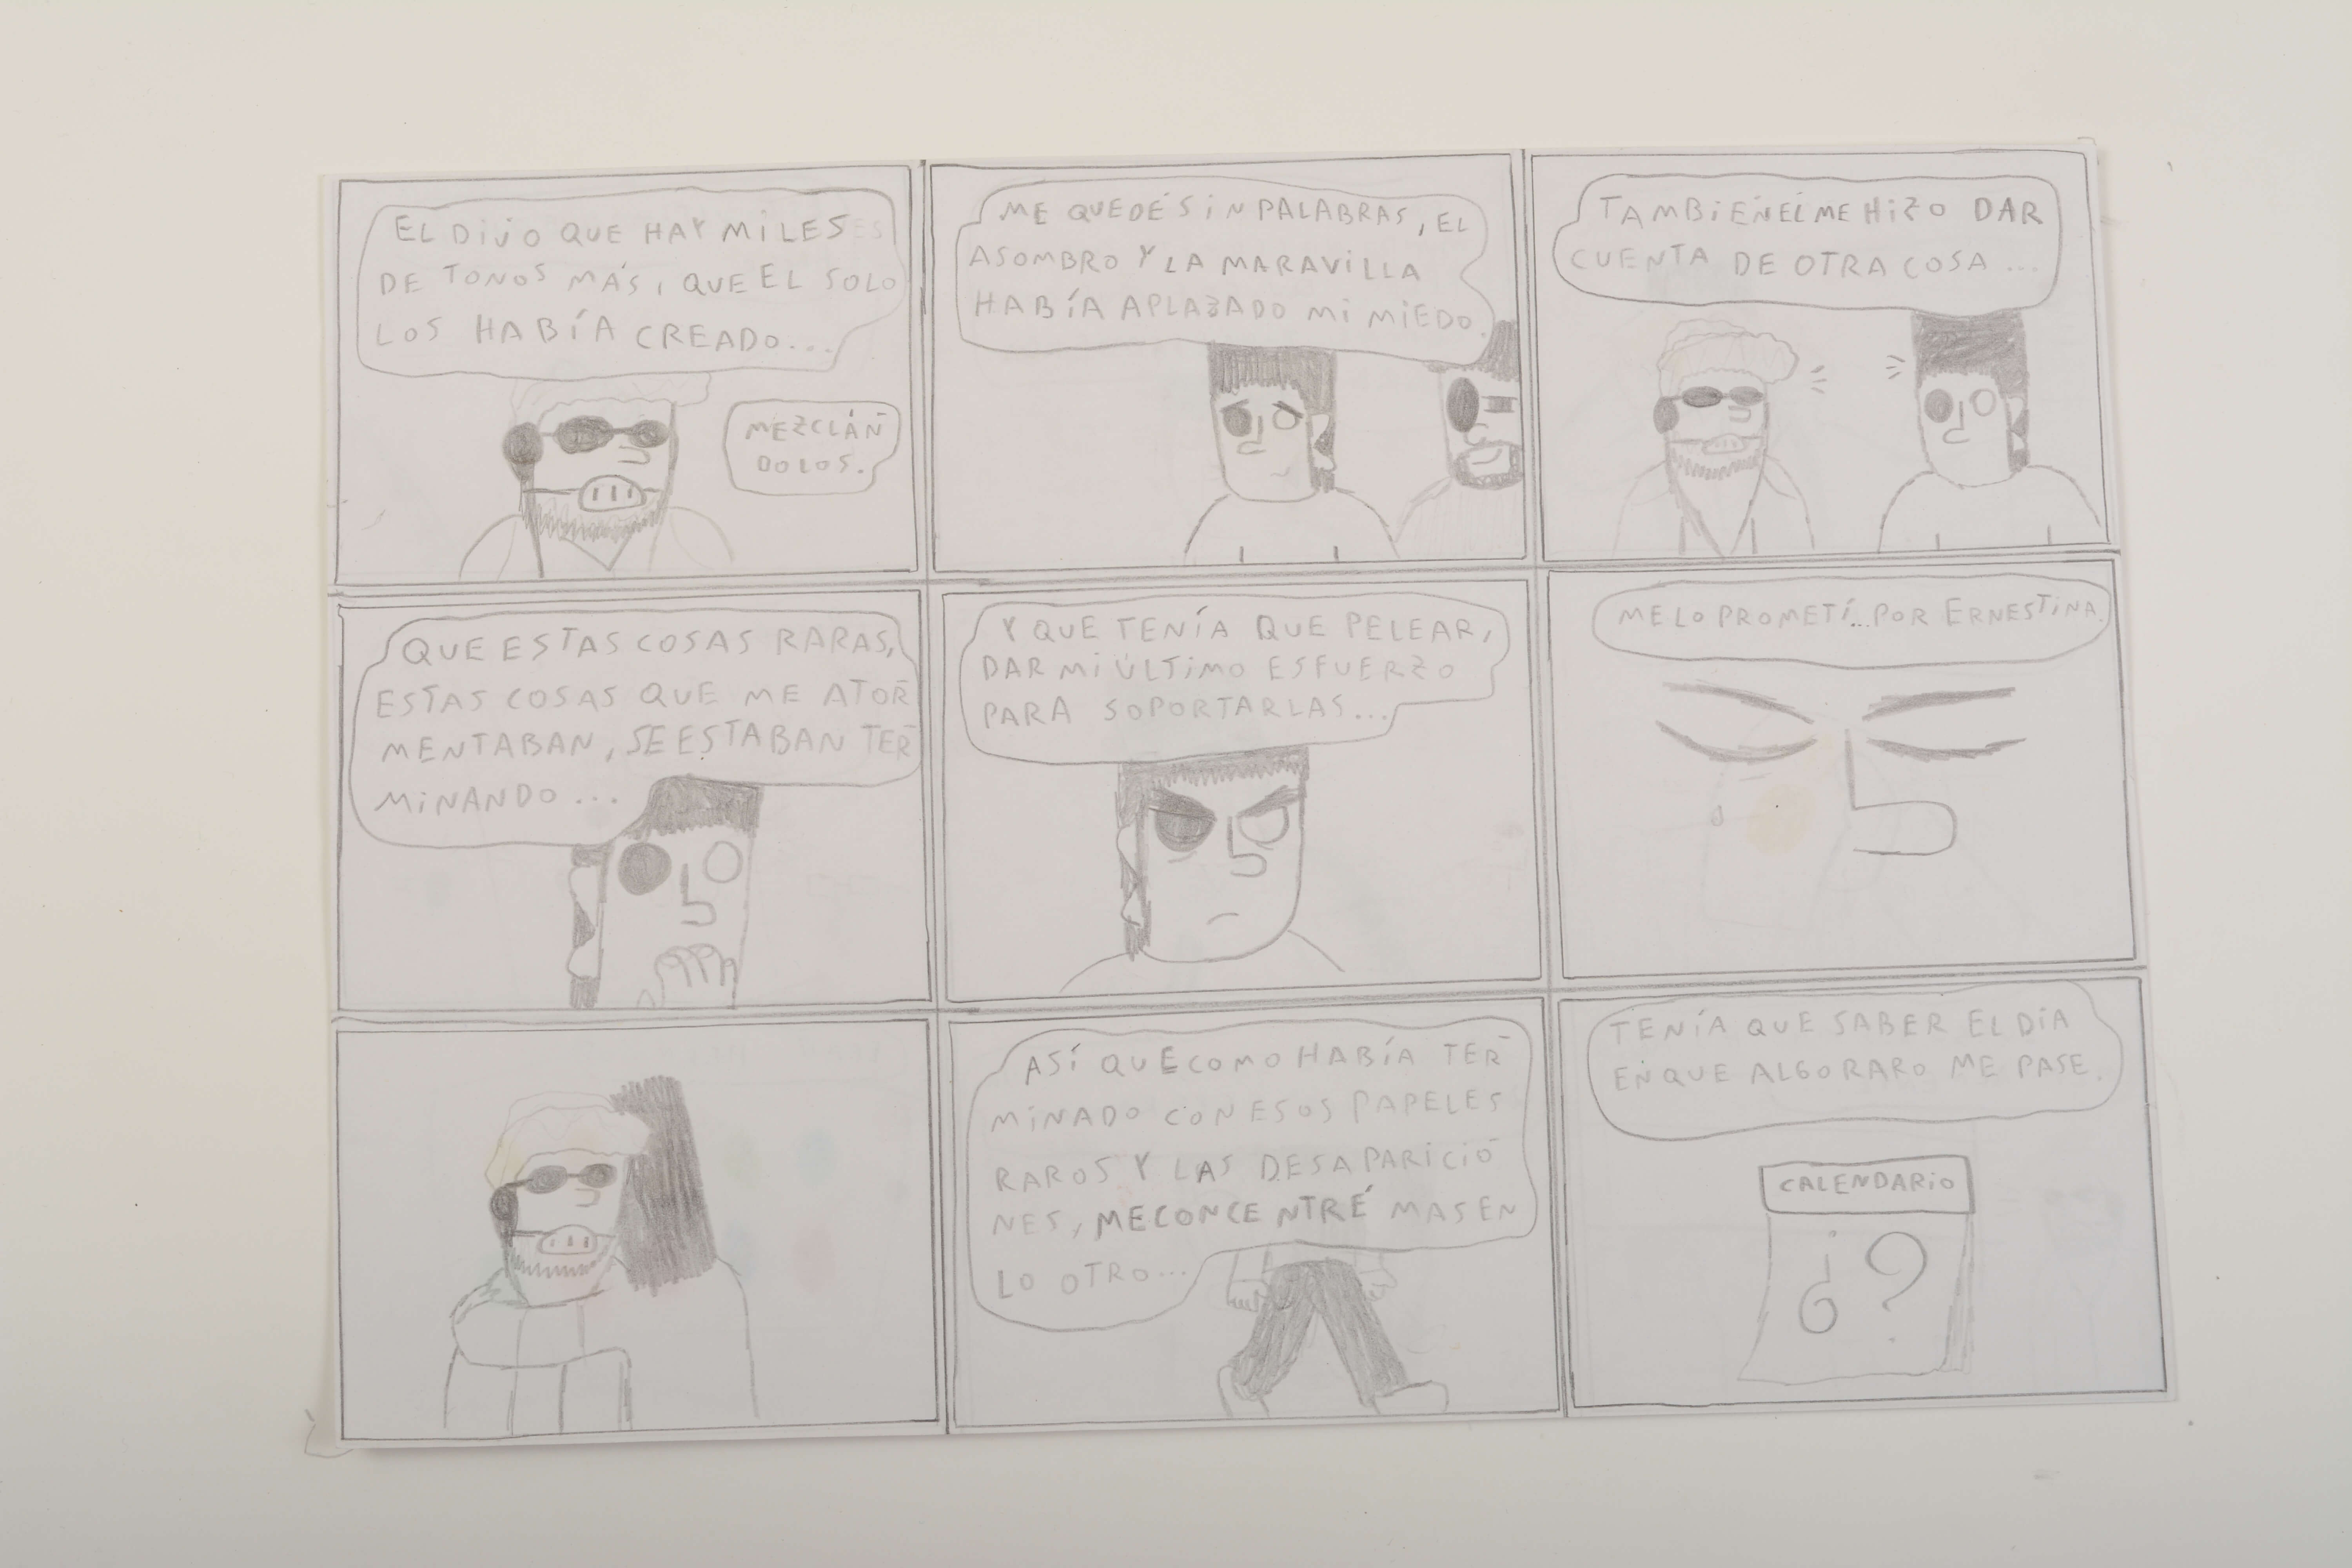 EL DIJO QUE HAY MILES
DE TONOS MÁS, QUE EL SOLO
LOS HABÍA CREADO...
MEZCLÁN-
DOLOS.
ME QUEDÉ SIN PALABRAS, EL
ASOMBRO Y LA MARAVILLA
HABÍA APLAZADO MI MIEDO.
TAMBIEN EL ME HIZO DAR
CUENTA DE OTRA COSA...
QUE ESTAS COSAS RARAS,
ESTAS COSAS QUE ME ATOR-
MENTABAN, SE ESTABAN TER-
MINANDO...
Y QUE TENÍA QUE PELEAR,
DAR MI ÚLTIMO ESFUERZO
PARA SOPORTARLAS...
ME LO PROMETÍ... POR ERNESTINA.
ASÍ QUE COMO HABÍA TER-
MINADO CON ESOS PAPELES
RAROS Y LAS DESAPARICIO-
NES, ME CONCENTRÉ MAS EN
LO OTRO...
TENÍA QUE SABER EL DÍA
EN QUE ALGO RARO ME PASE.
CALENDARIO
¿?